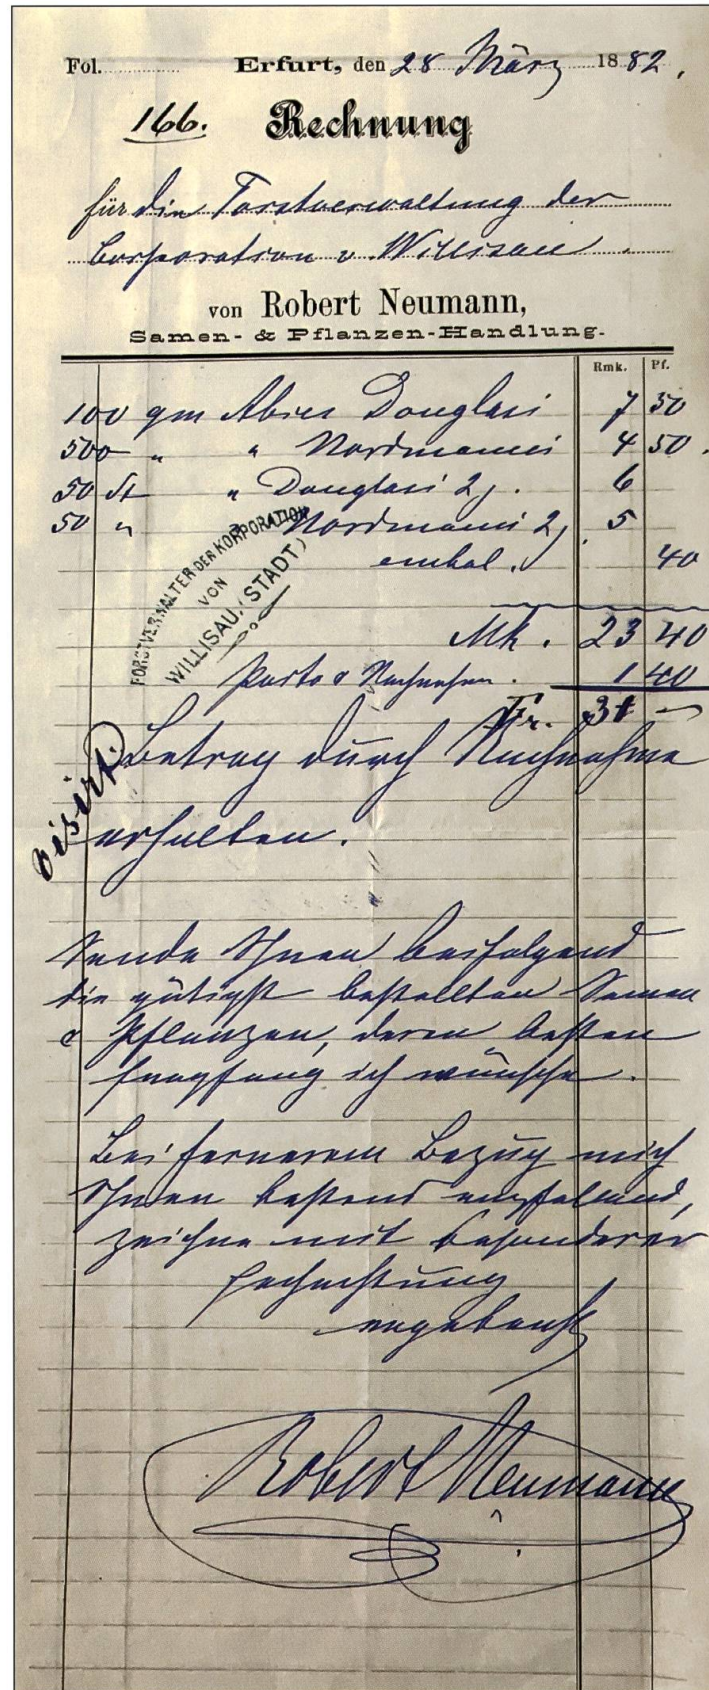 Fol. Erfurt, den 28 März 1882.
166. Rechnung
für die Forstverwaltung der
Corporation v. Willisau.
von Robert Neumann,
Samen- & Pflanzen-Handlung.
Rmk. Pf.
100 gm Abies Douglasi 7 50
500 " " Nordmanni 4 50.
50 St " Douglasi 2j. 6
50 " " Nordmanni 2j. 5
embal. 40
FORSTVERWALTER DER KORPORATION
VON
WILLISAU (STADT)
Mk. 23 40
Porto & Nachnahme. 1 40
Fr. 31 —
visirt.
Betrag durch Nachnahme
erhalten.
Sende Ihnen beifolgend
die gütigst bestellten Samen
& Pflanzen, deren besten
Empfang ich wünsche.
Bei fernerem Bezug mich
Ihnen bestens empfehlend,
zeichne mit besonderer
Hochachtung
ergebenst
Robert Neumann